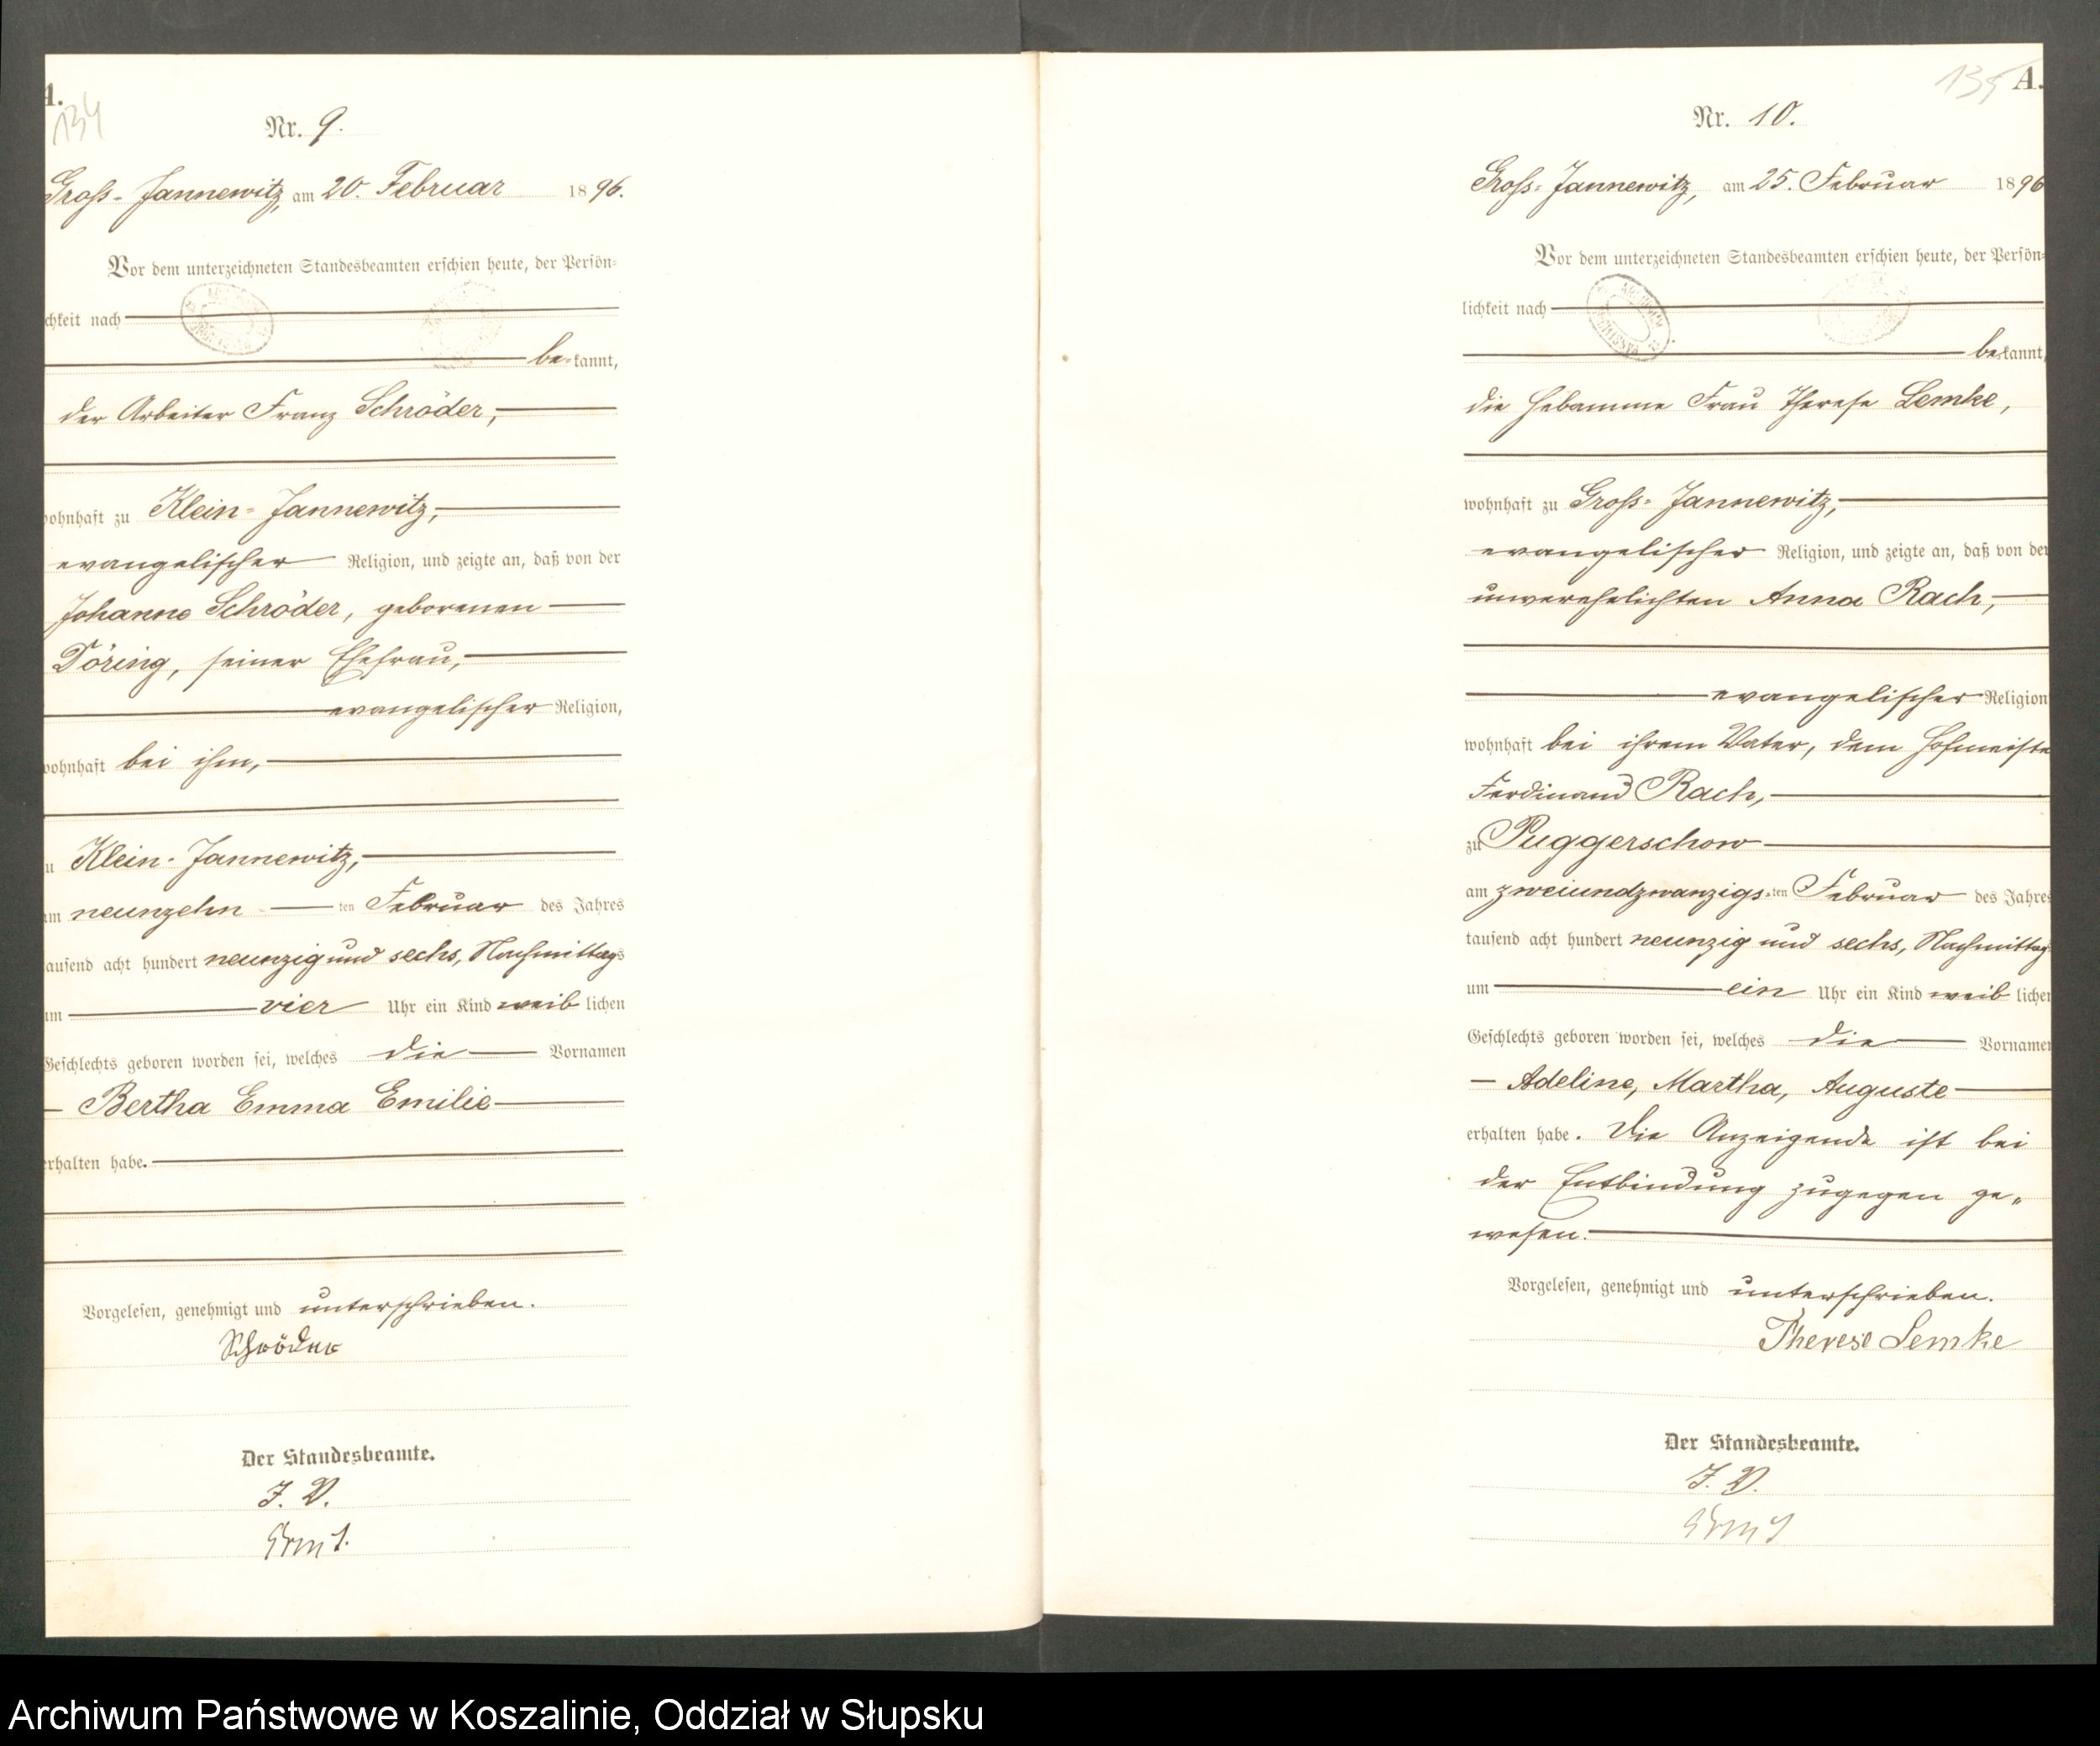 A.
134
Nr. 9.
Gross-Jannewitz, am 20. Februar 1896.
Vor dem unterzeichneten Standesbeamten erschien heute, der Persön-
chkeit nach
be-kannt,
der Arbeiter Franz Schröder,
wohnhaft zu Klein-Jannewitz,
evangelischer Religion, und zeigte an, daß von der
Johanne Schröder, geborenen
Döring, seiner Ehefrau,
evangelischer Religion,
wohnhaft bei ihm,
zu Klein-Jannewitz,
am neunzehn ten Februar des Jahres
tausend acht hundert neunzig und sechs, Nachmittags
um vier Uhr ein Kind weiblichen
Geschlechts geboren worden sei, welches die Vornamen
Bertha Emma Emilie
erhalten habe.
Vorgelesen, genehmigt und unterschrieben.
Schröder
Der Standesbeamte.
J. V.
135 A.
Nr. 10.
Gross-Jannewitz, am 25. Februar 1896
Vor dem unterzeichneten Standesbeamten erschien heute, der Persön-
lichkeit nach
bekannt,
die Hebamme Frau Therese Lemke,
wohnhaft zu Gross-Jannewitz,
evangelischer Religion, und zeigte an, daß von der
unverehelichten Anna Rach,
evangelischer Religion
wohnhaft bei ihrem Vater, dem Hofmeiste
Ferdinand Rach,
zu Puggerschow
am zweiundzwanzigs-ten Februar des Jahres
tausend acht hundert neunzig und sechs, Nachmittag
um ein Uhr ein Kind weiblicher
Geschlechts geboren worden sei, welches die Vornamen
Adeline, Martha, Auguste
erhalten habe. Die Anzeigende ist bei
der Entbindung zugegen ge-
wesen.
Vorgelesen, genehmigt und unterschrieben.
Therese Lemke
Der Standesbeamte.
J. V.
Archiwum Państwowe w Koszalinie, Oddział w Słupsku